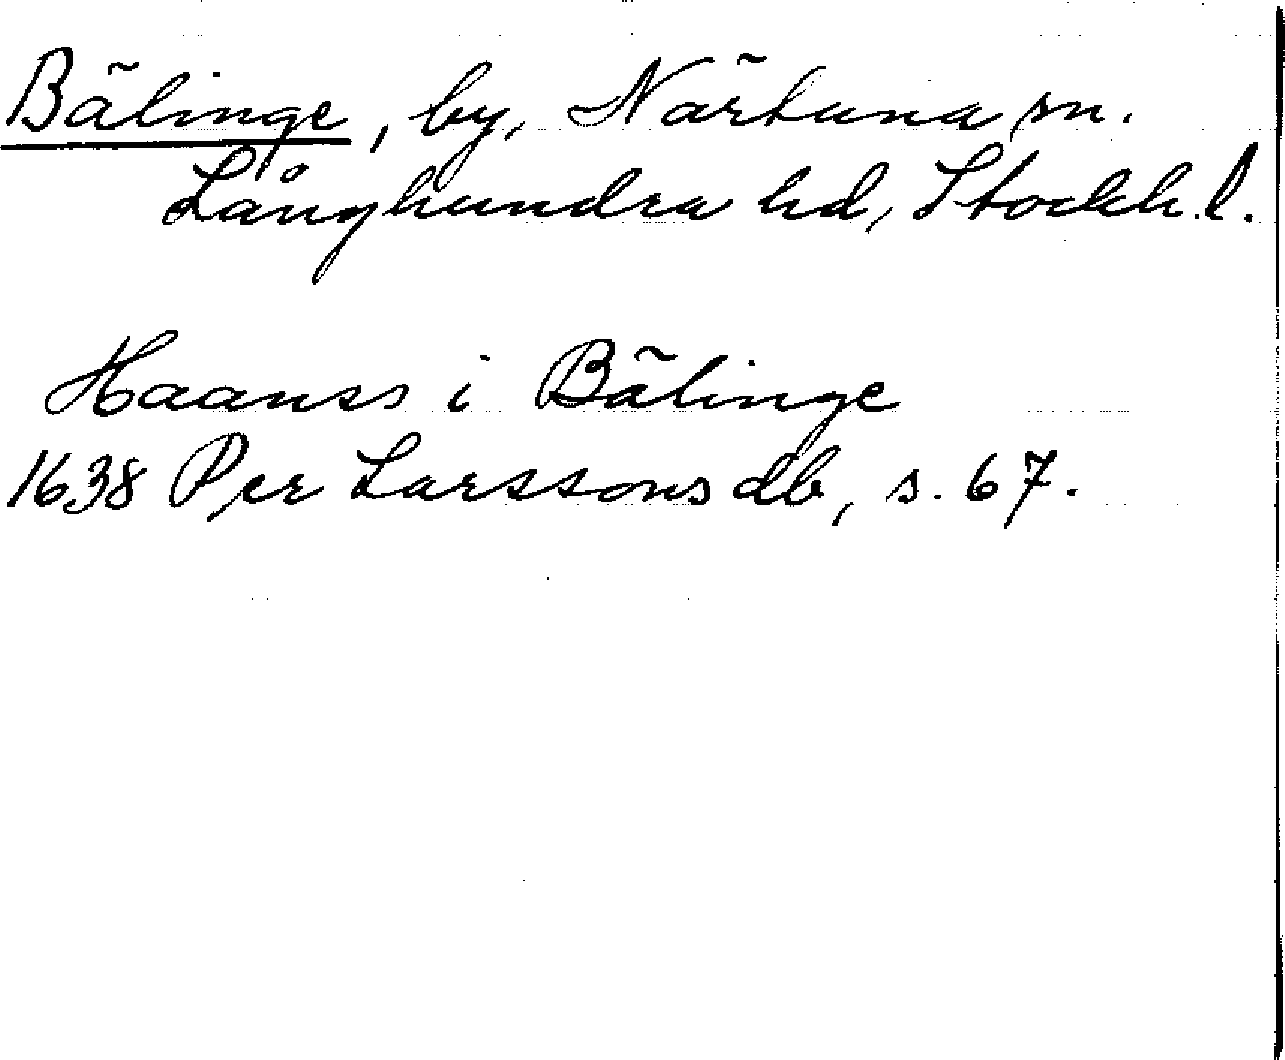 Bälinge, by, Närtuna sn.
Långhundra hd, Stockh. l.
Haanss i Bälinge
1638 Per Larssons db, s. 67.